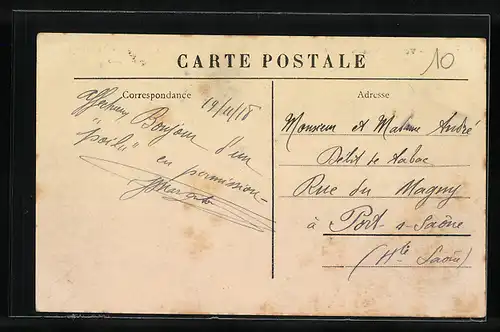 CARTE POSTALE
10
Correspondance
Adresse
19/11/18
Affectueux Bonjour d'un
"poilu" en permission
Monsieur et Madame André
Debit de tabac
Rue du Magny
à Port-s-Saône
(Hte Saône)